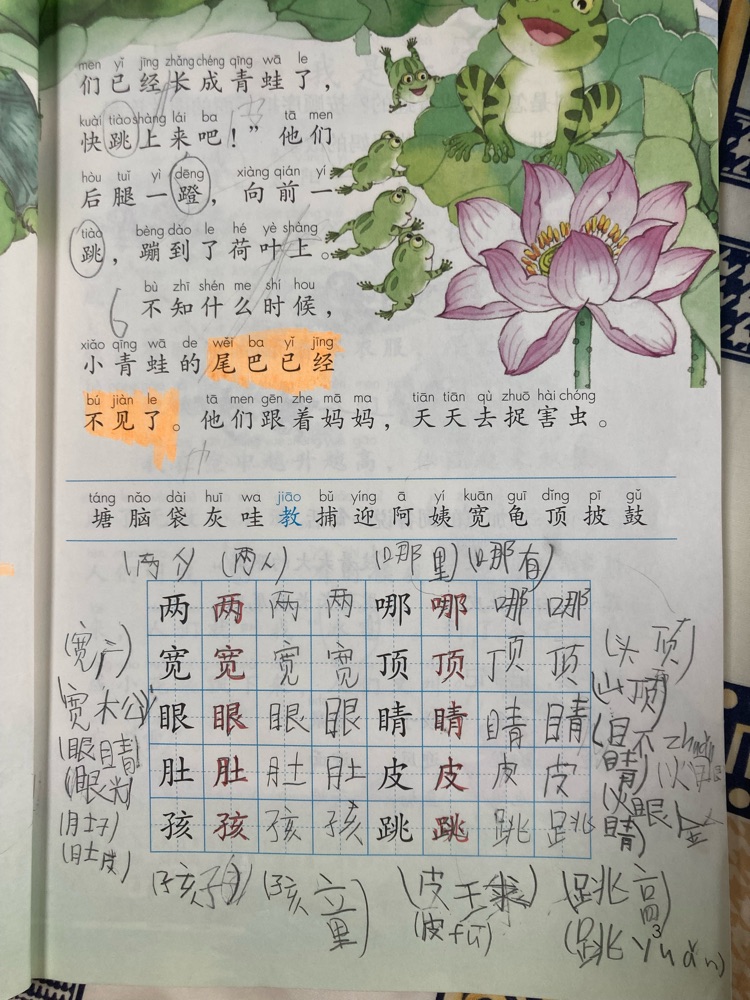 men yǐ jīng zhǎng chéng qīng wā le
们已经长成青蛙了，
kuài tiào shàng lái ba tā men
快跳上来吧！” 他们
hòu tuǐ yì dēng xiàng qián yí
后腿一蹬，向前一
tiào bèng dào le hé yè shàng
跳，蹦到了荷叶上。
bù zhī shén me shí hou
6 不知什么时候，
xiǎo qīng wā de wěi ba yǐ jīng
小青蛙的尾巴已经
bú jiàn le tā men gēn zhe mā ma tiān tiān qù zhuō hài chóng
不见了。他们跟着妈妈，天天去捉害虫。
táng nǎo dài huī wa jiāo bǔ yíng ā yí kuān guī dǐng pī gǔ
塘 脑 袋 灰 哇 教 捕 迎 阿 姨 宽 龟 顶 披 鼓
(两个) (两人) (哪里) (哪有)
两 两 两 两 哪 哪 哪 哪
(宽广) 宽 宽 宽 宽 顶 顶 顶 顶 (头顶)
(宽大) 眼 眼 眼 眼 睛 睛 睛 睛 (山顶)
(眼睛) 肚 肚 肚 肚 皮 皮 皮 皮 (目不 睛)
(眼光) 孩 孩 孩 孩 跳 跳 跳 跳
(肚子)
(肚皮)
(孩子) (孩童) (皮球) (跳高)
(皮fū) (跳yuǎn)